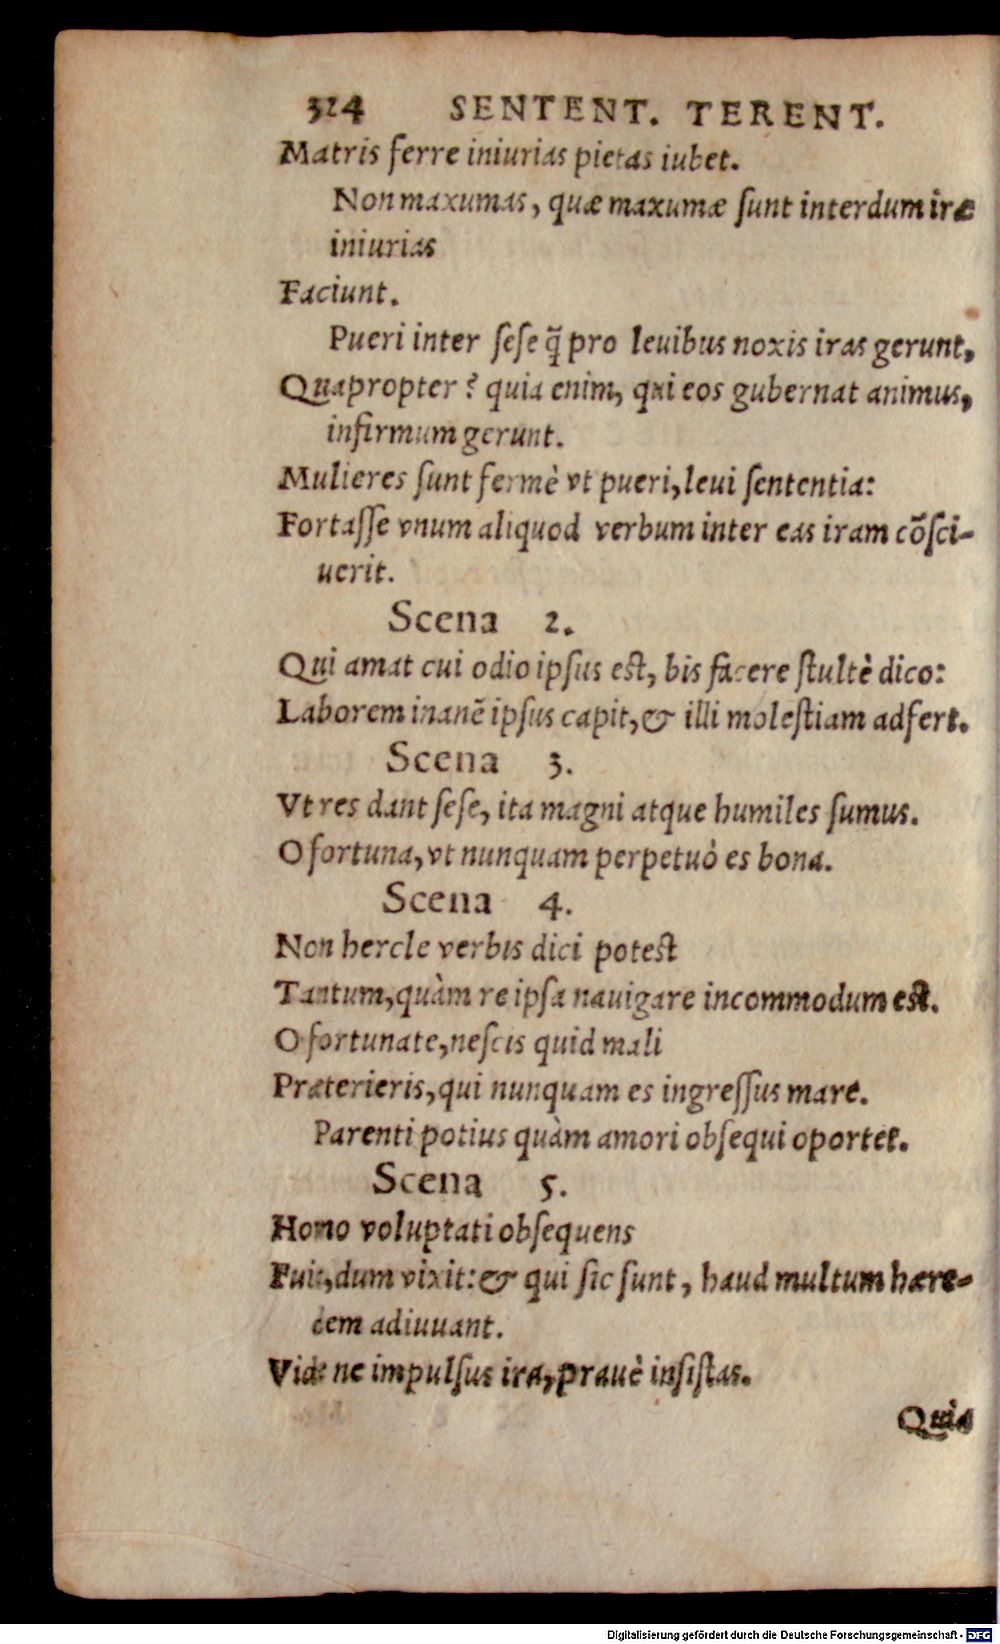 324 SENTENT. TERENT.
Matris ferre iniurias pietas iubet.
Non maxumas, quæ maxumæ ſunt interdum iræ
iniurias
Faciunt.
Pueri inter ſeſe q̃ pro leuibus noxis iras gerunt,
Quapropter? quia enim, qui eos gubernat animus,
infirmum gerunt.
Mulieres ſunt fermè vt pueri, leui ſententia:
Fortaſſe vnum aliquod verbum inter eas iram cõſci-
uerit.
Scena 2.
Qui amat cui odio ipſus est, bis facere ſtultè dico:
Laborem inanẽ ipſus capit, & illi moleſtiam adfert.
Scena 3.
Vt res dant ſeſe, ita magni atque humiles ſumus.
O fortuna, vt nunquam perpetuò es bona.
Scena 4.
Non hercle verbis dici potest
Tantum, quàm re ipſa nauigare incommodum est.
O fortunate, neſcis quid mali
Præterieris, qui nunquam es ingreſſus mare.
Parenti potius quàm amori obſequi oportet.
Scena 5.
Homo voluptati obſequens
Fuit, dum vixit: & qui ſic ſunt, haud multum hære-
dem adiuuant.
Vide ne impulſus ira, prauè inſiſtas.
Quia
Digitalisierung gefördert durch die Deutsche Forschungsgemeinschaft - DFG